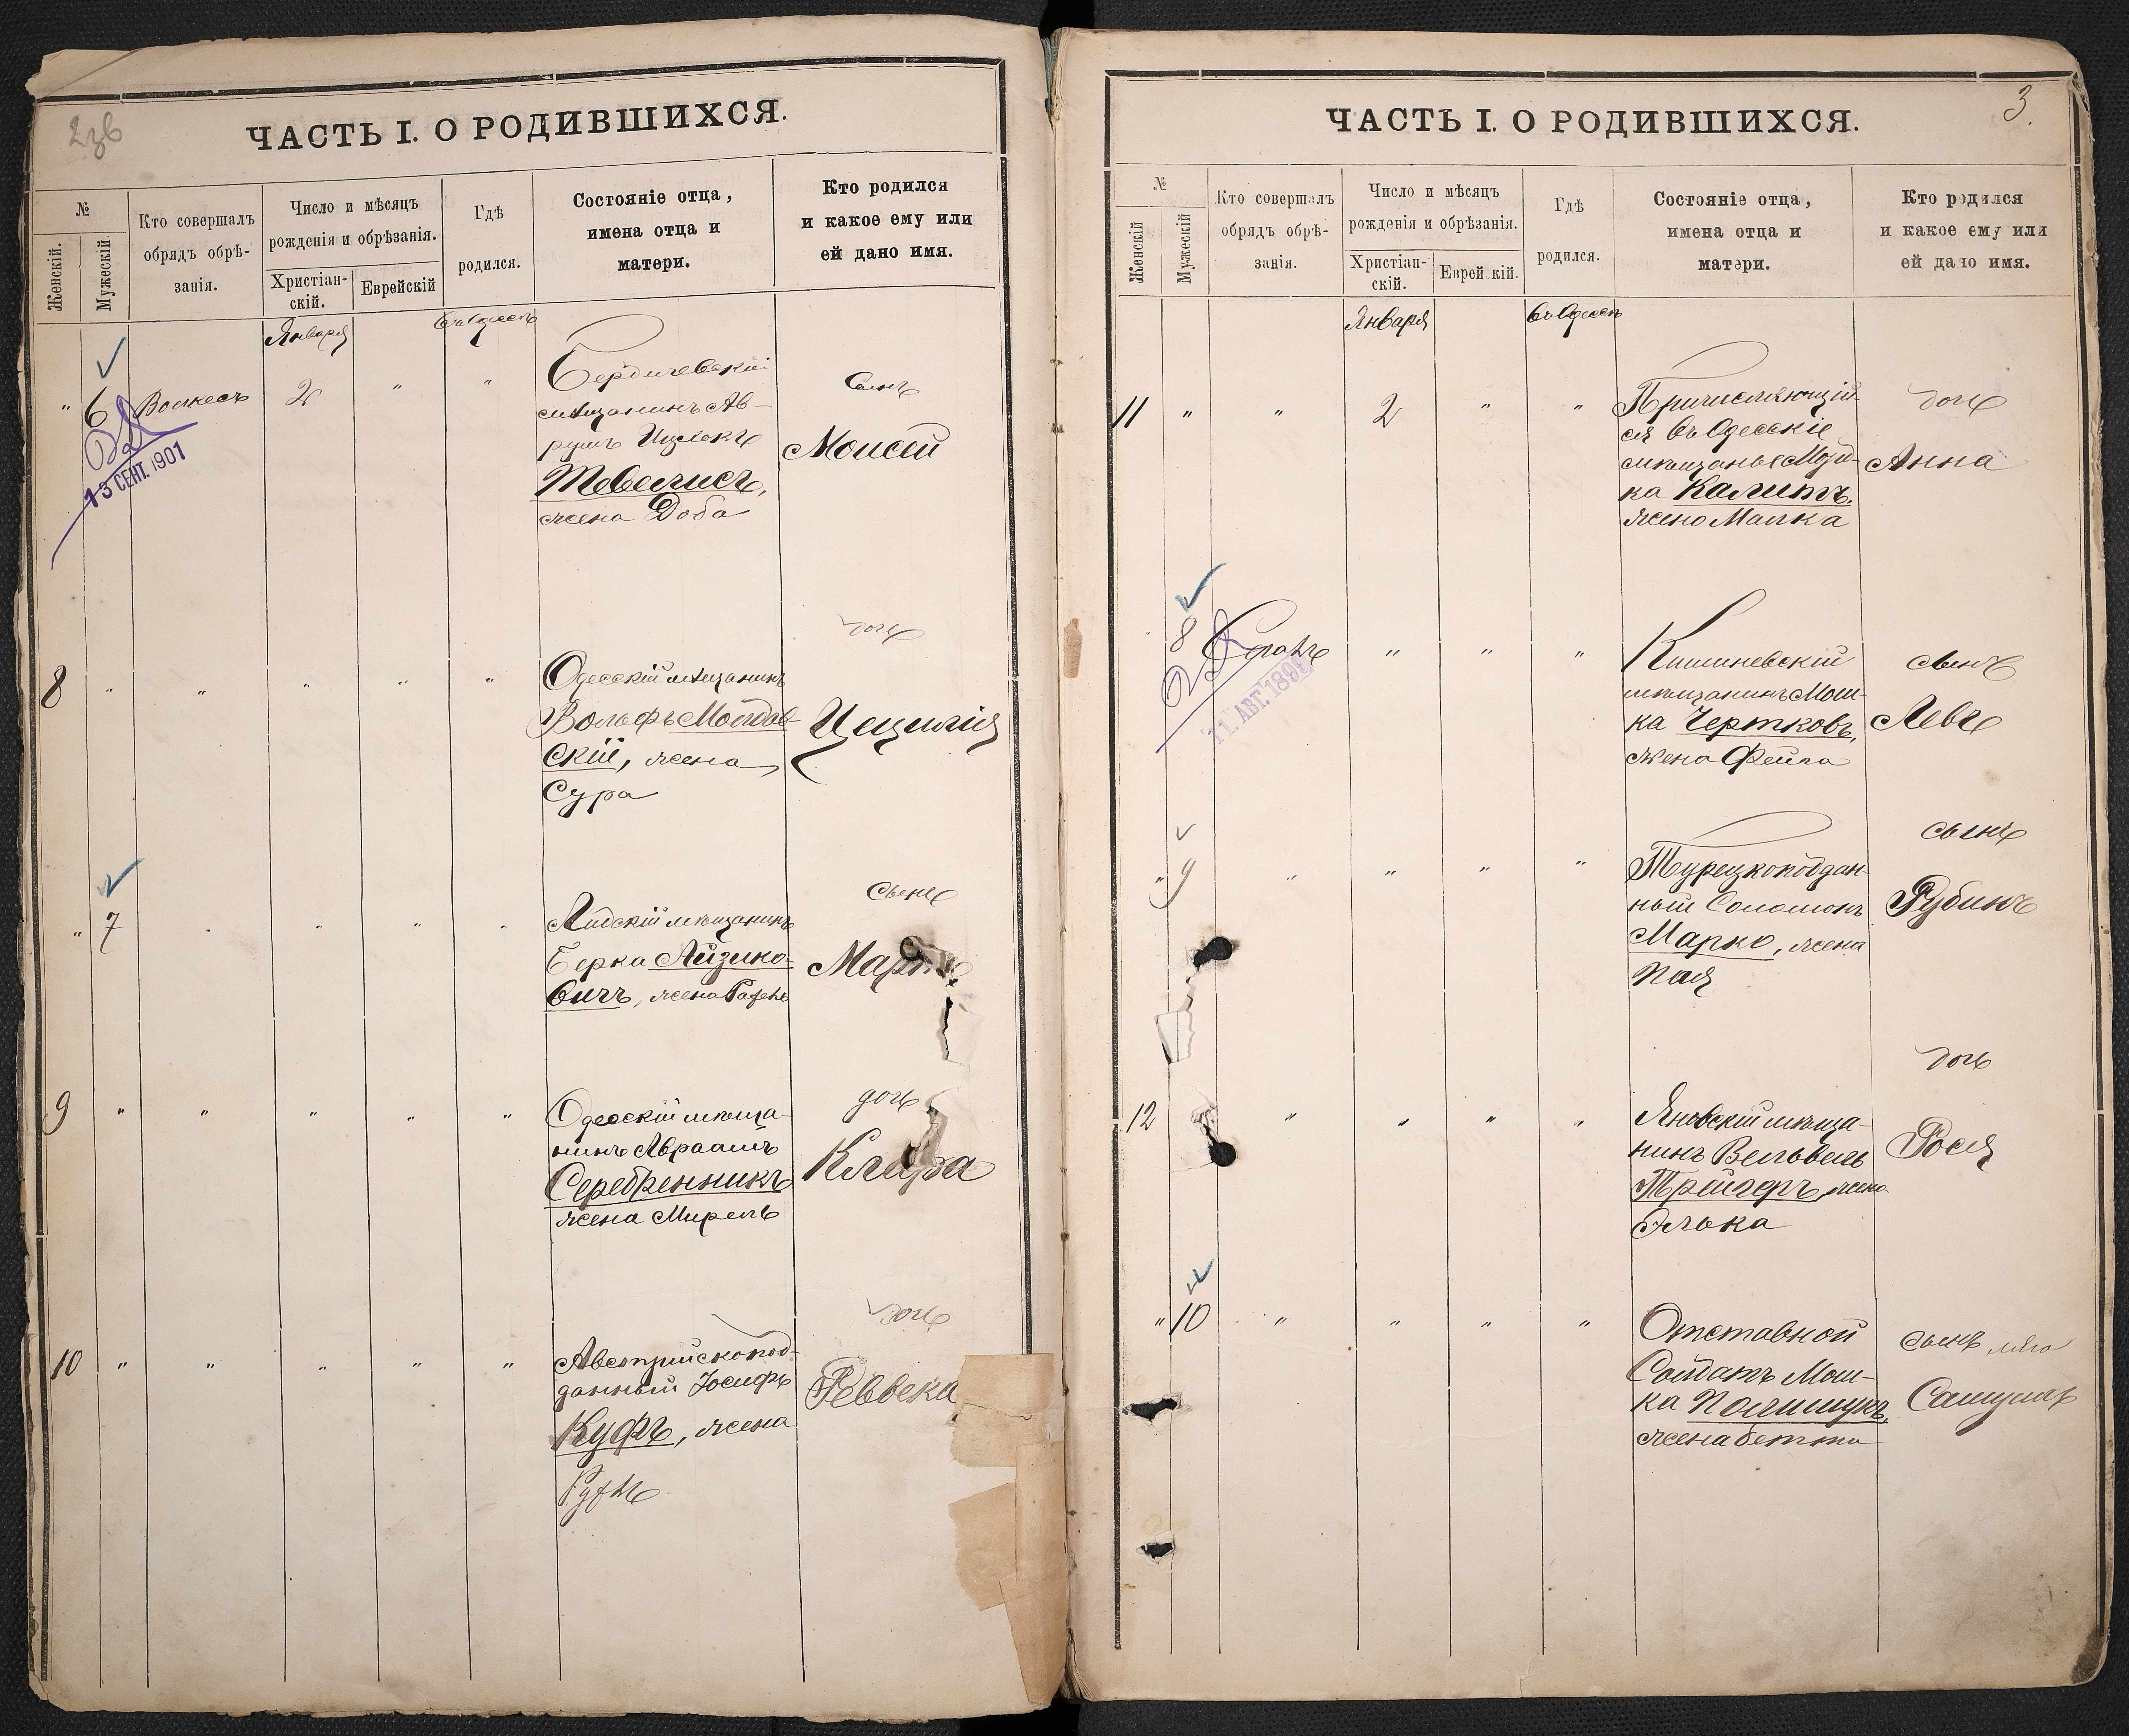 ЧАСТЬ I. О РОДИВШИХСЯ.
№
Женскій.
Мужескій.
Кто совершалъ
обрядъ обрѣ-
занія.
Число и мѣсяцъ
рожденія и обрѣзанія.
Христіан-
скій.
Еврейскій
Гдѣ
родился.
Состояніе отца,
имена отца и
матери.
Кто родился
и какое ему или
ей дано имя.
Января
въ Одессѣ
" 6
2 " "
13 СЕНТ. 1901
Бердичевскій
мѣщанинъ Ав-
румъ Ицсекъ
Тевелисъ,
жена Доба
Сынъ
Моисей
8 " " " " "
Одесскій мѣщанинъ
Вольфъ Молдав-
скій, жена
Сура
дочь
Цецилія
" 7 " " " "
Лидскій мѣщанинъ
Берка Айзико-
вичъ, жена Рахель
Сынъ
9 " " " " "
Одесскій мѣща-
нинъ Авраамъ
Серебренникъ
жена Мирель
дочь
Клара
10 " " " " "
Австрійскопод-
данный Іосифъ
Куфъ, жена
Рухль
дочь
Ревека
3.
ЧАСТЬ I. О РОДИВШИХСЯ.
№
Женскій
Мужескій
Кто совершалъ
обрядъ обрѣ-
занія.
Число и мѣсяцъ
рожденія и обрѣзанія.
Христіан-
скій.
Еврей кій.
Гдѣ
родился.
Состояніе отца,
имена отца и
матери.
Кто родился
и какое ему или
ей дано имя.
Января
въ Одессѣ
11 " " 2 " "
Причисляющій-
ся въ Одесскіе
мѣщане
ка Калипъ,
жена Малка
дочь
Анна
8 " " "
11. АВГ. 189
Кишиневскій
мѣщанинъ Мош-
ка Чертковъ,
жена Фейга
сынъ
Левъ
" 9 " " " "
Турецкоподдан-
ный Соломонъ
Марко, жена
Пая
сынъ
Рубинъ
12 " " " "
Яновскій мѣща-
нинъ Вельвель
Трейгеръ, жена
Элька
дочь
Рося
" 10 " " " "
Отставной
Солдатъ Мош-
ка Полищукъ,
жена Бетти
сынъ, имя
Самуилъ